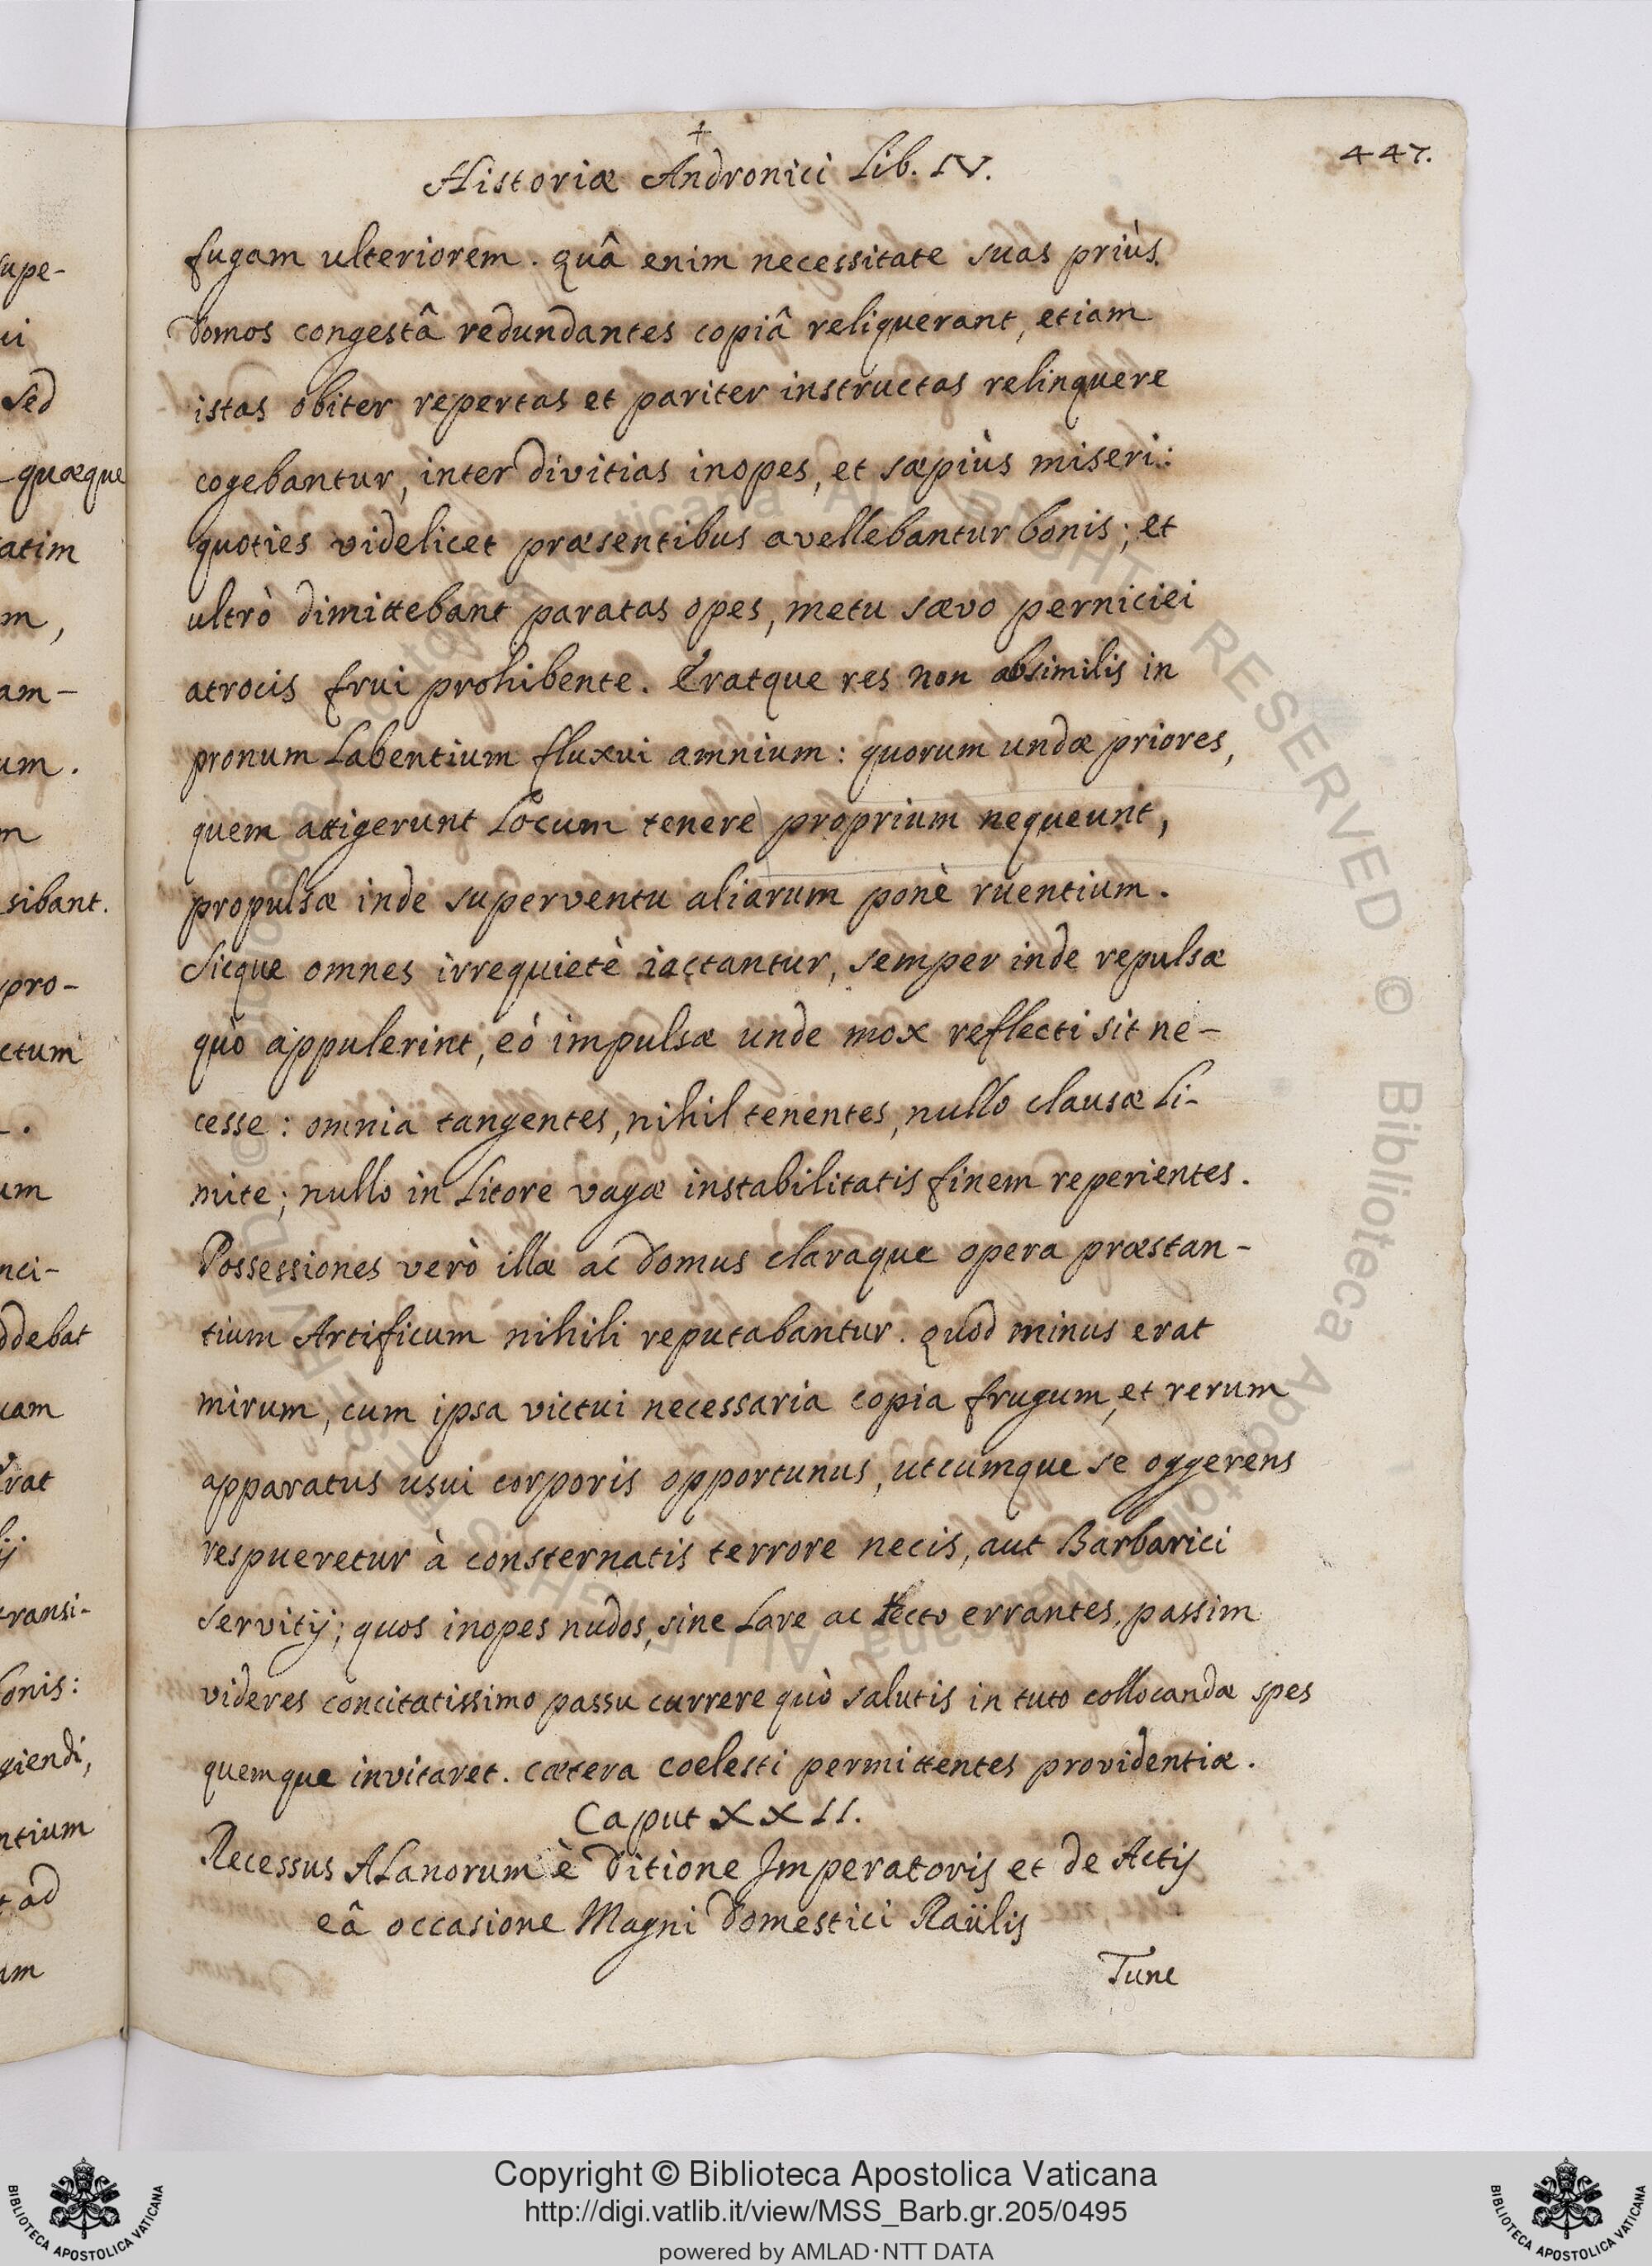 ✝
Historiæ Andronici Lib. IV.
447.
fugam ulteriorem. quâ enim necessitate suas priùs
domos congestâ redundantes copiâ reliquerant, etiam
istas obiter repertas et pariter instructas relinquere
cogebantur, inter divitias inopes, et sæpiùs miseri:
quoties videlicet præsentibus avellebantur bonis; et
ultrò dimittebant paratas opes, metu sævo perniciei
atrocis frui prohibente. Eratque res non absimilis in
pronum Labentium fluxui amnium: quorum undæ priores,
quem attigerunt Locum tenere proprium nequeunt,
propulsæ inde superventu aliarum ponè ruentium.
Sicque omnes irrequietè iactantur, semper inde repulsæ
quò appulerint, eò impulsæ unde mox reflecti sit ne-
cesse: omnia tangentes, nihil tenentes, nullo clausæ Li-
mite; nullo in Litore vagæ instabilitatis finem reperientes.
Possessiones verò illæ ac domus claraque opera præstan-
tium Artificum nihili reputabantur. quod minus erat
mirum, cum ipsa victui necessaria copia frugum, et rerum
apparatus usui corporis opportunus, utcumque se oggerens
respueretur à consternatis terrore necis, aut Barbarici
servitij; quos inopes nudos, sine Lare ac tecto errantes, passim
videres concitatissimo passu currere quò salutis in tuto collocandæ spes
quemque invitaret. cætera coelesti permittentes providentiæ.
Caput XXII.
Recessus Alanorum è ditione Imperatoris et de Actis
eâ occasione Magni domestici Raülis
Tunc
supe-
ui
sed
quæque
atim
m,
am-
um.
m
sibant.
pro-
ctum
um
nci-
ddebat
uam
rat
ij
transi-
onis:
giendi,
ntium
t ad
um
© Biblioteca Apostolica Vaticana ALL RIGHTS RESERVED
© Biblioteca Apostolica Vaticana ALL RIGHTS RESERVED
BIBLIOTECA APOSTOLICA VATICANA
Copyright © Biblioteca Apostolica Vaticana
http://digi.vatlib.it/view/MSS_Barb.gr.205/0495
powered by AMLAD·NTT DATA
BIBLIOTECA APOSTOLICA VATICANA